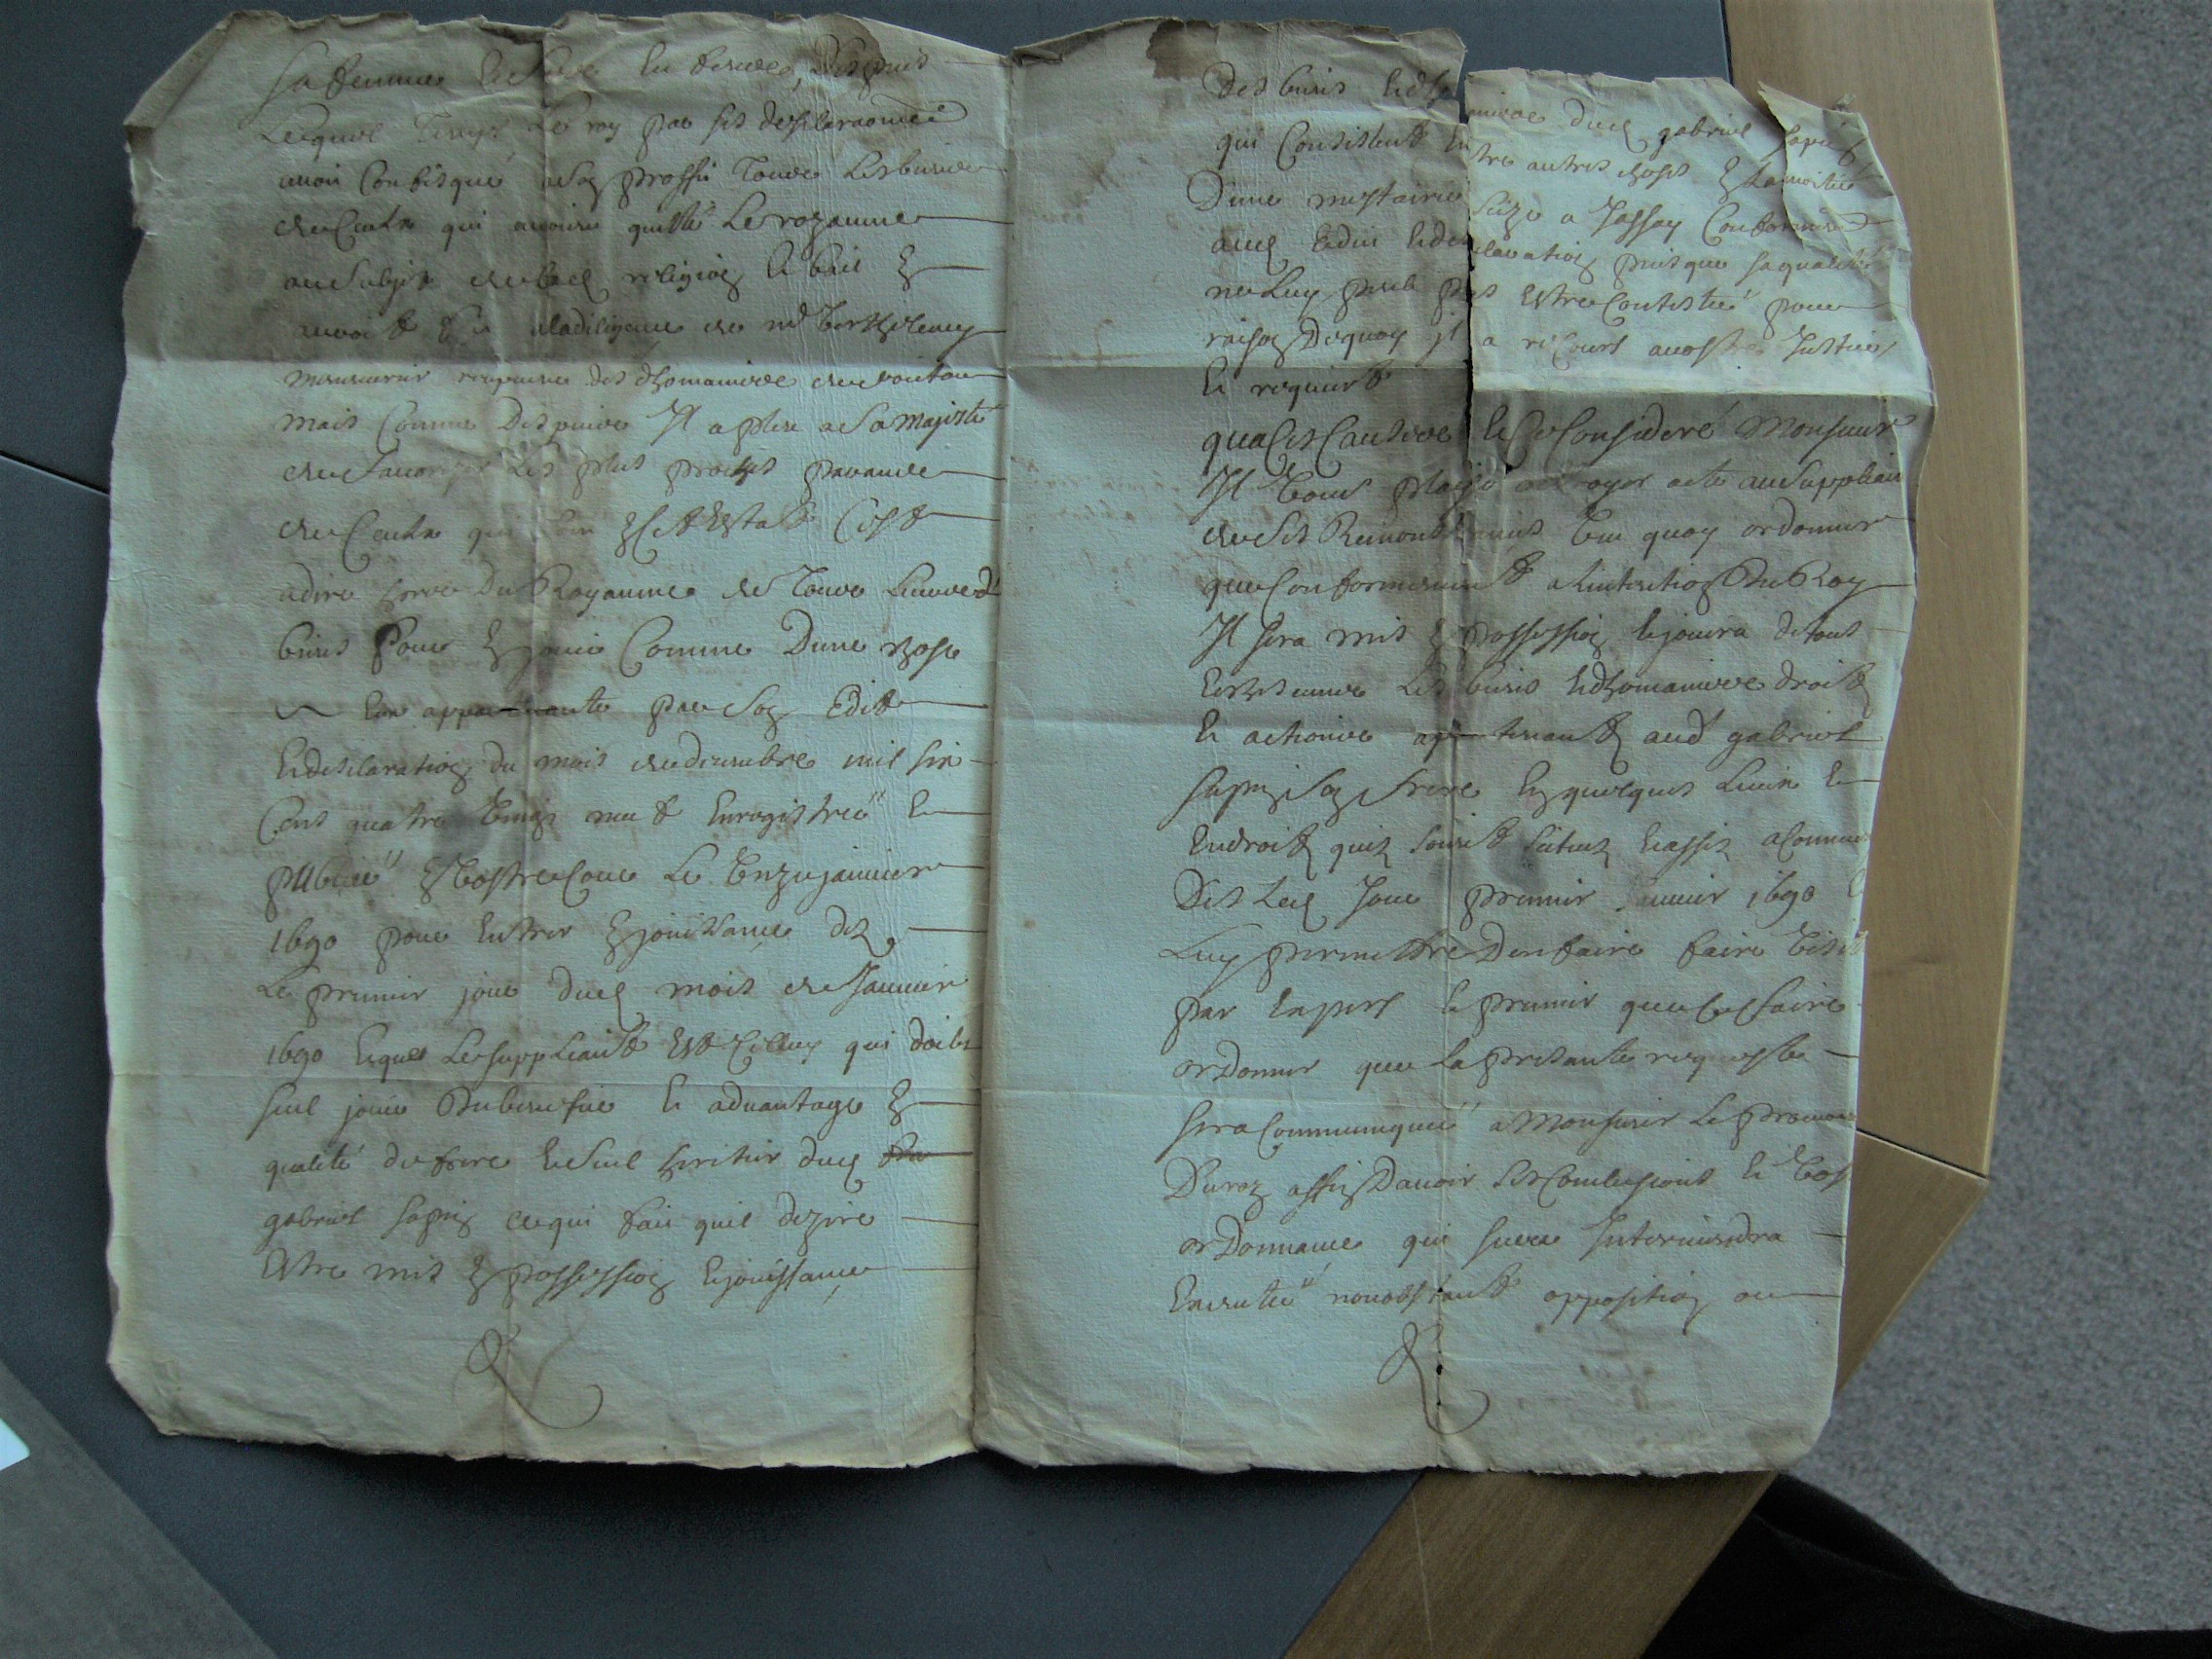 sa femme
Lequel temps Le roy par ses desclaraon
auoit confisqué a son proffit tous Les biens
de Ceulx qui auoient quitté Le royaume
au subjet de lad religion Et bail en
auroit a la diligence de
receveur des dhomaines de
mais Comme Despuis Il a pleu a Sa Majesté
de Les plus proches parans
de Ceulx qui En Cet Estat C'est
adire hors Du Royaume de tous Leurs d
biens Pour En jouir Comme D'une chose
Leur appartenante par Son Edit
Et desclaration du mois de decembre mil six
Cens quatre vingt neuf Enregistrée Et
publiée En vostre Cour Le Unze januier
1690 pour Entrer En jouissance dez
Le premier jour dud mois de Januier
1690 Et que Le suppliant Est Celluy qui doibt
seul jouir Du benefice Et aduantage En
qualité de frere Et seul heritier dud
gabriel sapin ce qui fait quil dezire
Estre mis En possession Et jouissance
Des biens Et domaines dud gabriel sapin
qui Consistent Entre autres choses En La moitié
D'une mestairie size a Jassay Conformement
aud Edit Et declaration puis que sa qualité
ne Luy peult pas Estre Contestée pour
raison De quoy jl a recours a vostre Justice
Et requiert
qua Ces Causes Et Ce Consideré Monsieur
Il Vous plaise octroyer acte au Suppliant
de Ses Remonstrances Em quoy ordonner
que Conformement a L'intention Du Roy
Il sera mis En possession Et jouira de tous
Et Les biens Et dhomaines droits
Et actions apartenant aud gabriel
sapin Son frere En quelques Lieux Et
Endroits quilz soient Situez Et assis a Commencer
Des Led Jour premier Januier 1690 Et
Luy permettre D'en faire faire Visite
par Expers Et premier que Ce faire
ordonner que La presante requeste
sera Communiquée a Monsieur Le procureur
Du roy affin D'auoir Ses Conclusions Et Vos
ordonnance qui sur Ce Interviendra
Executée nonobstant opposition ou